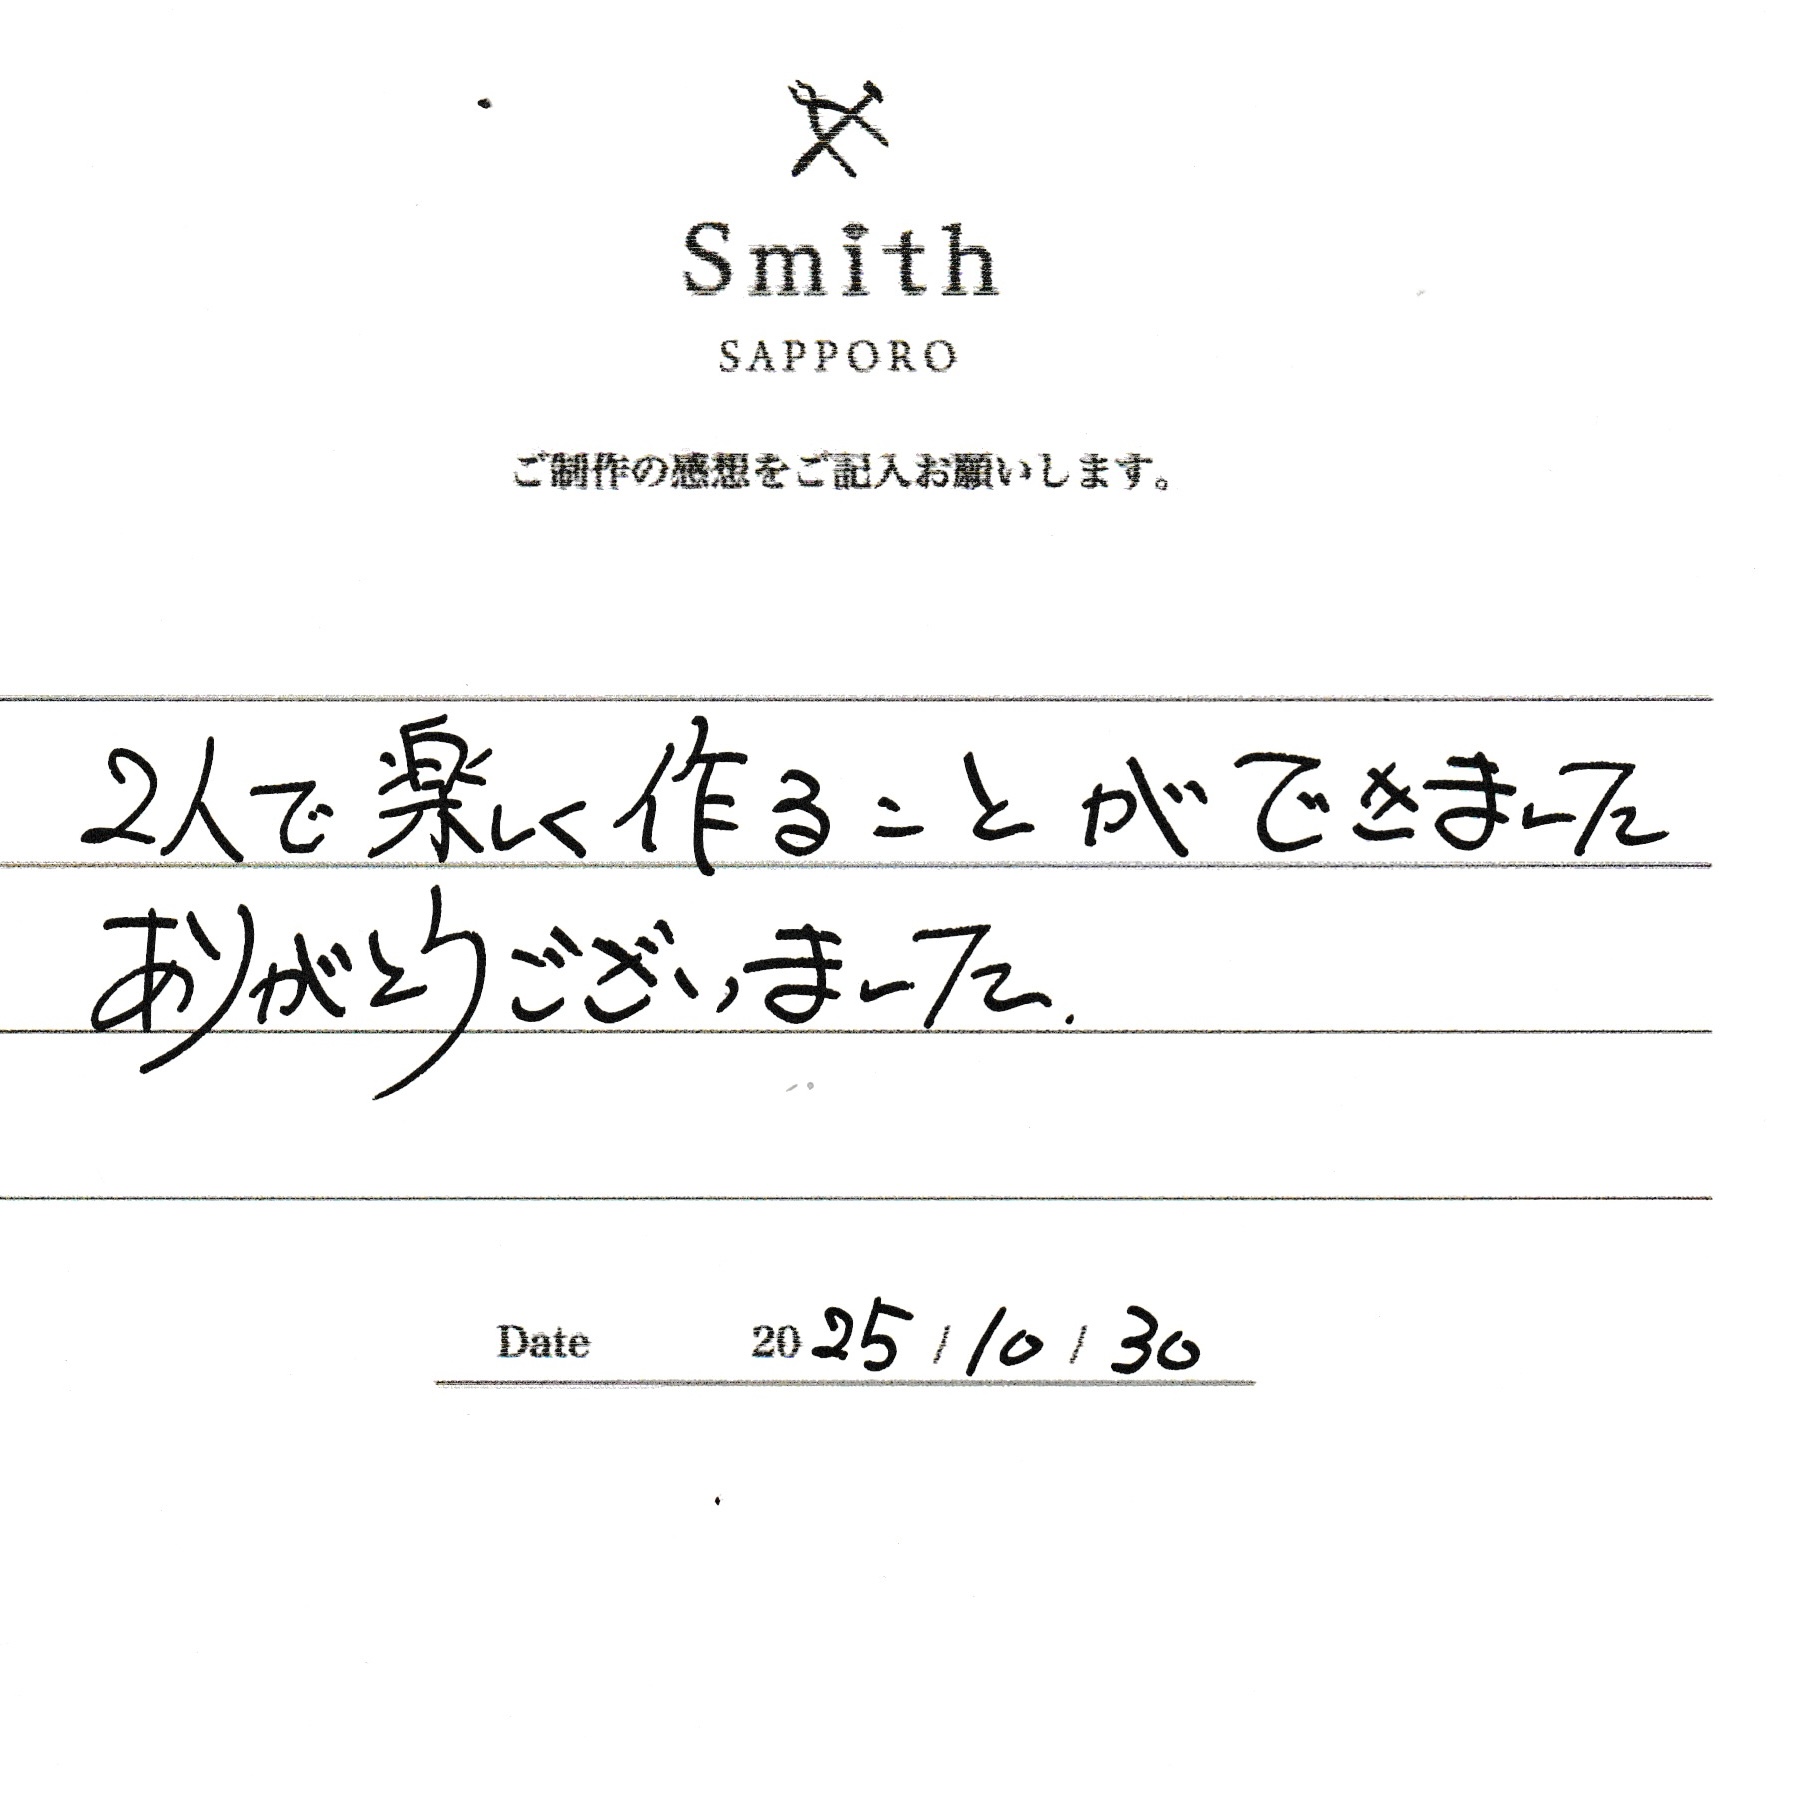 Smith
SAPPORO
ご制作の感想をご記入お願いします。
2人で楽しく作ることができました
ありがとうございました.
Date 2025/10/30